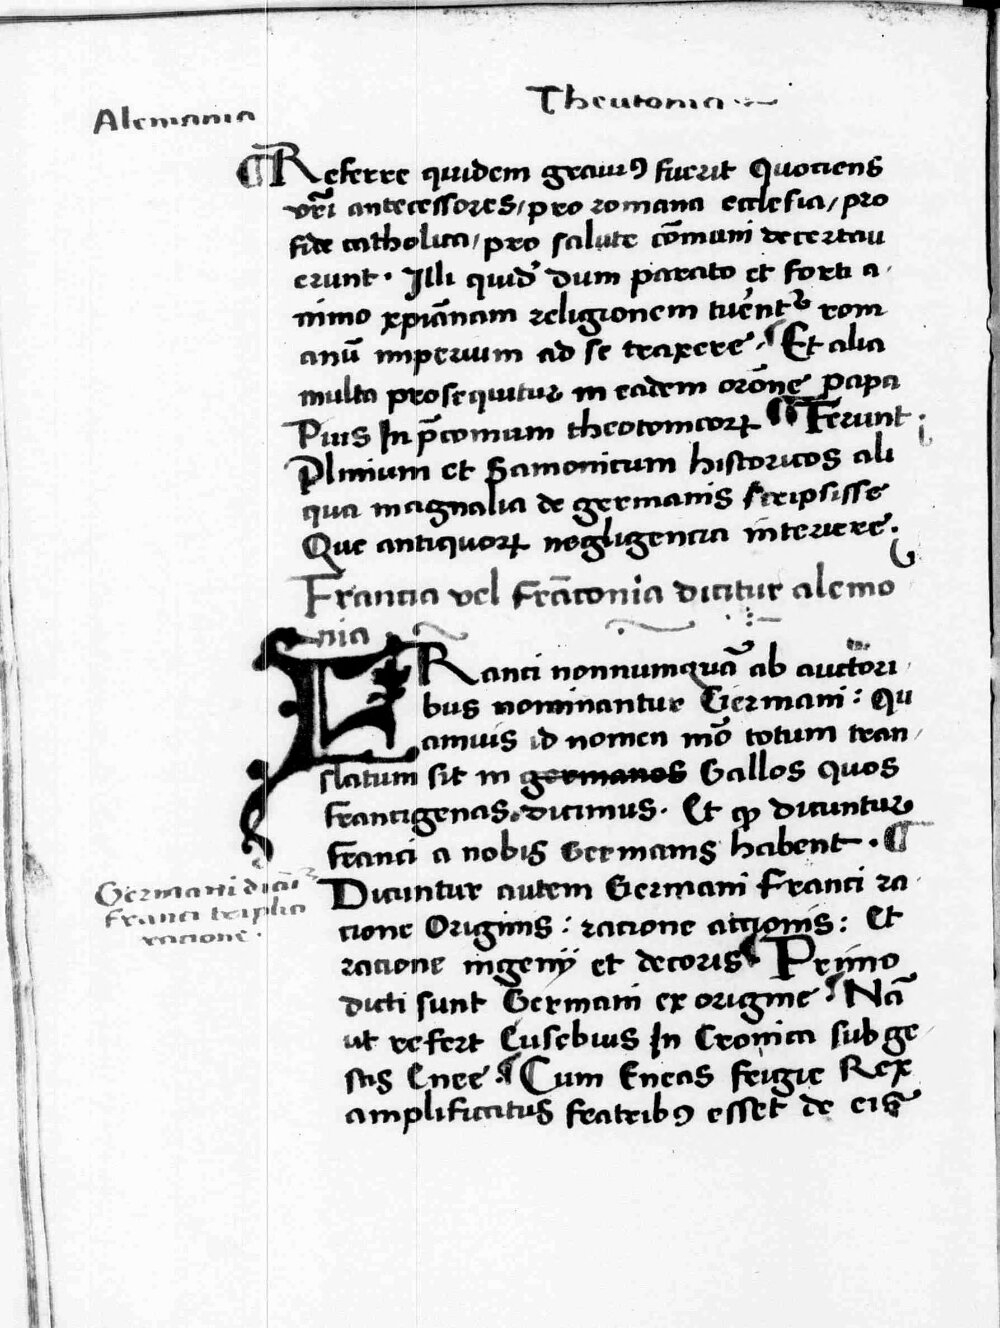 Alemania
Theutonia
¶ Referre quidem grauiꝰ fuerit Quociens
vr̃i antecessores / pro romana ecclesia / pro
fide catholica / pro salute cõmuni decertau
erunt · Illi quid' dum parato et forti a
nimo xpĩanam religionem tuentᷣ rom
anũ imperium ad se traxere · Et alia
multa prosequitur in eadem orõne papa
Pius In p̃comum theotomcorꝝ ¶ Ferunt
Plinium et Samonicum historicos ali
qua magnalia de germanis scripsisse
Que antiquorꝝ negligencia interiere ·
Francia vel Frãconia dicitur alemo
nia
FRanci nonnumquã ab auctori
bus nominantur Germani : Qu
amuis id nomen mõ totum tran
slatum sit in germanos Gallos quos
francigenas dicimus · Et ꝙ dicuntur
franci a nobis Germanis habent · ¶
Germani dicũtᷣ
franci triplici
racione ·
Dicuntur autem Germani Franci ra
cione Originis : racione accionis : Et
racione ingenij et decoris Primo
dicti sunt Germani ex origine Nã
ut refert Eusebius In Cronica sub ge
stis Enee · Cum Eneas frigie Rex
amplificatus fratribꝰ esset de eis